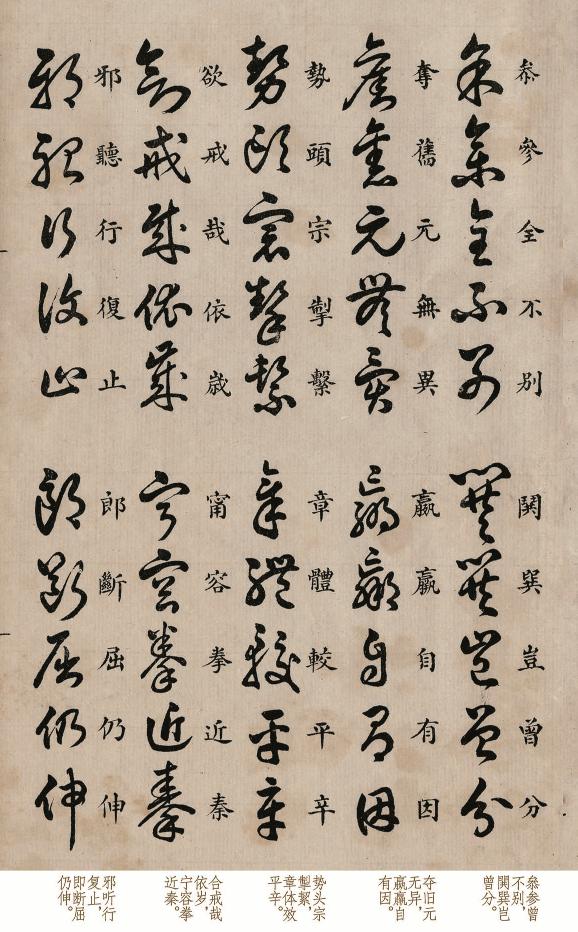 叅參全不別
鬦巽豈曾分
奪舊元無異
羸贏自有因
勢頭宗掣繫
章體較平辛
欲戒哉依歲
甯容拳近秦
邪聽行復止
郎斷屈仍伸
叅参曾
不别，
閧巽岂
曾分。
夺旧元
无异，
羸赢自
有因。
势头宗
掣絜，
章体效
平辛。
合戒哉
依岁，
宁容拳
近秦。
邪听行
复止，
即断屈
仍伸。